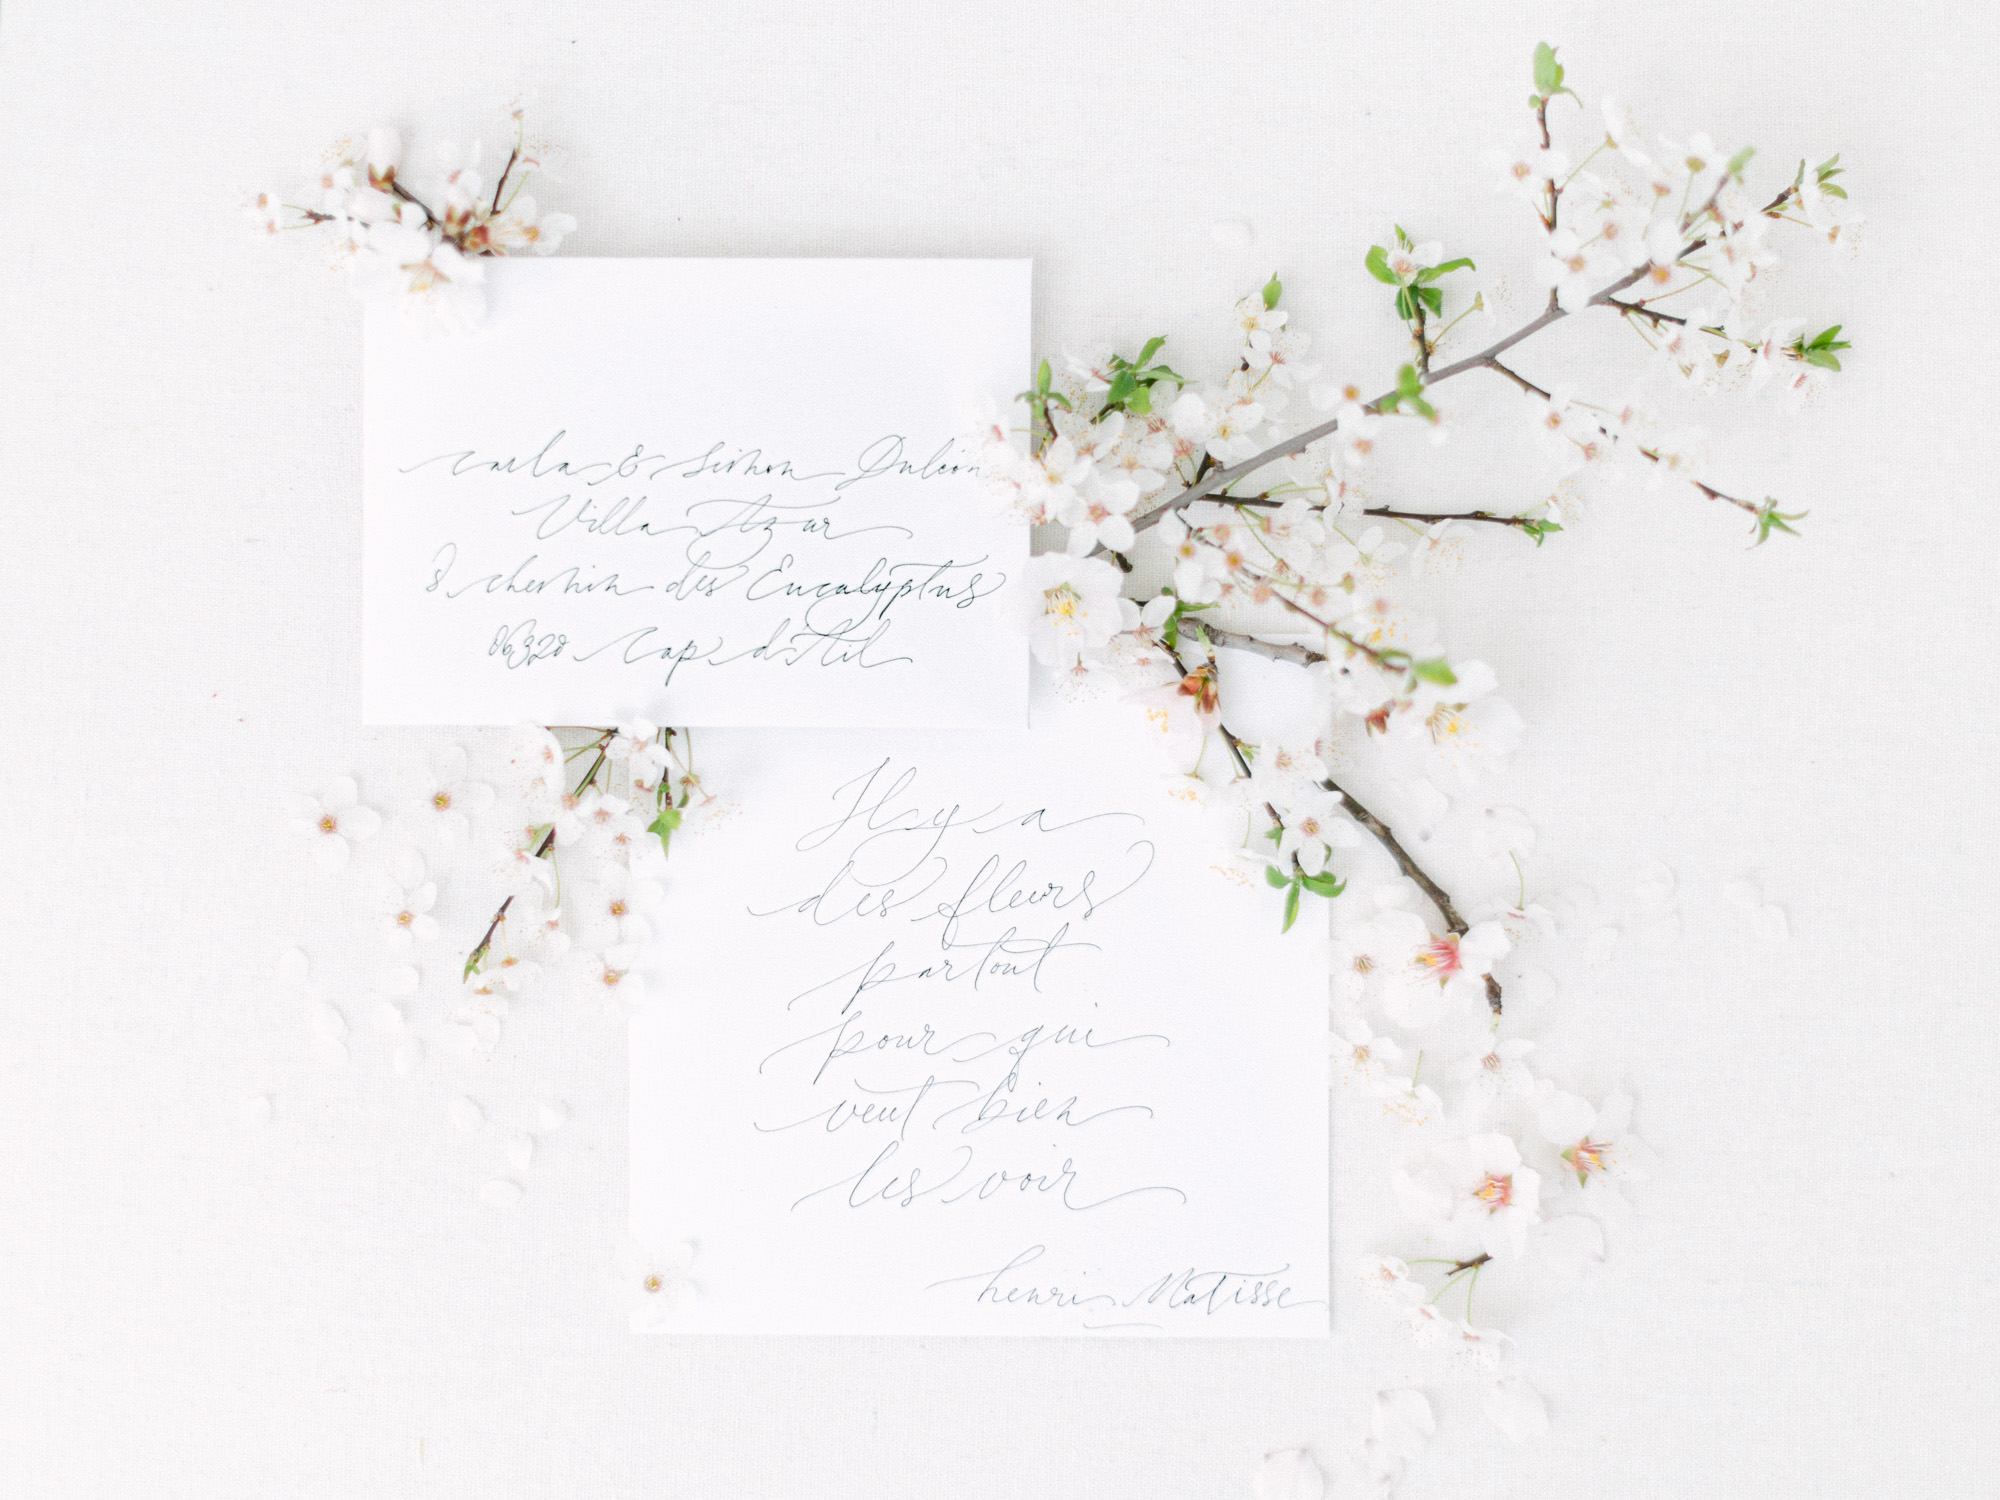 Carla & Simon Dulcon
Villa Azur
8 chemin des Eucalyptus
06320 Cap d'Ail
Il y a
des fleurs
partout
pour qui
veut bien
les voir
henri Matisse